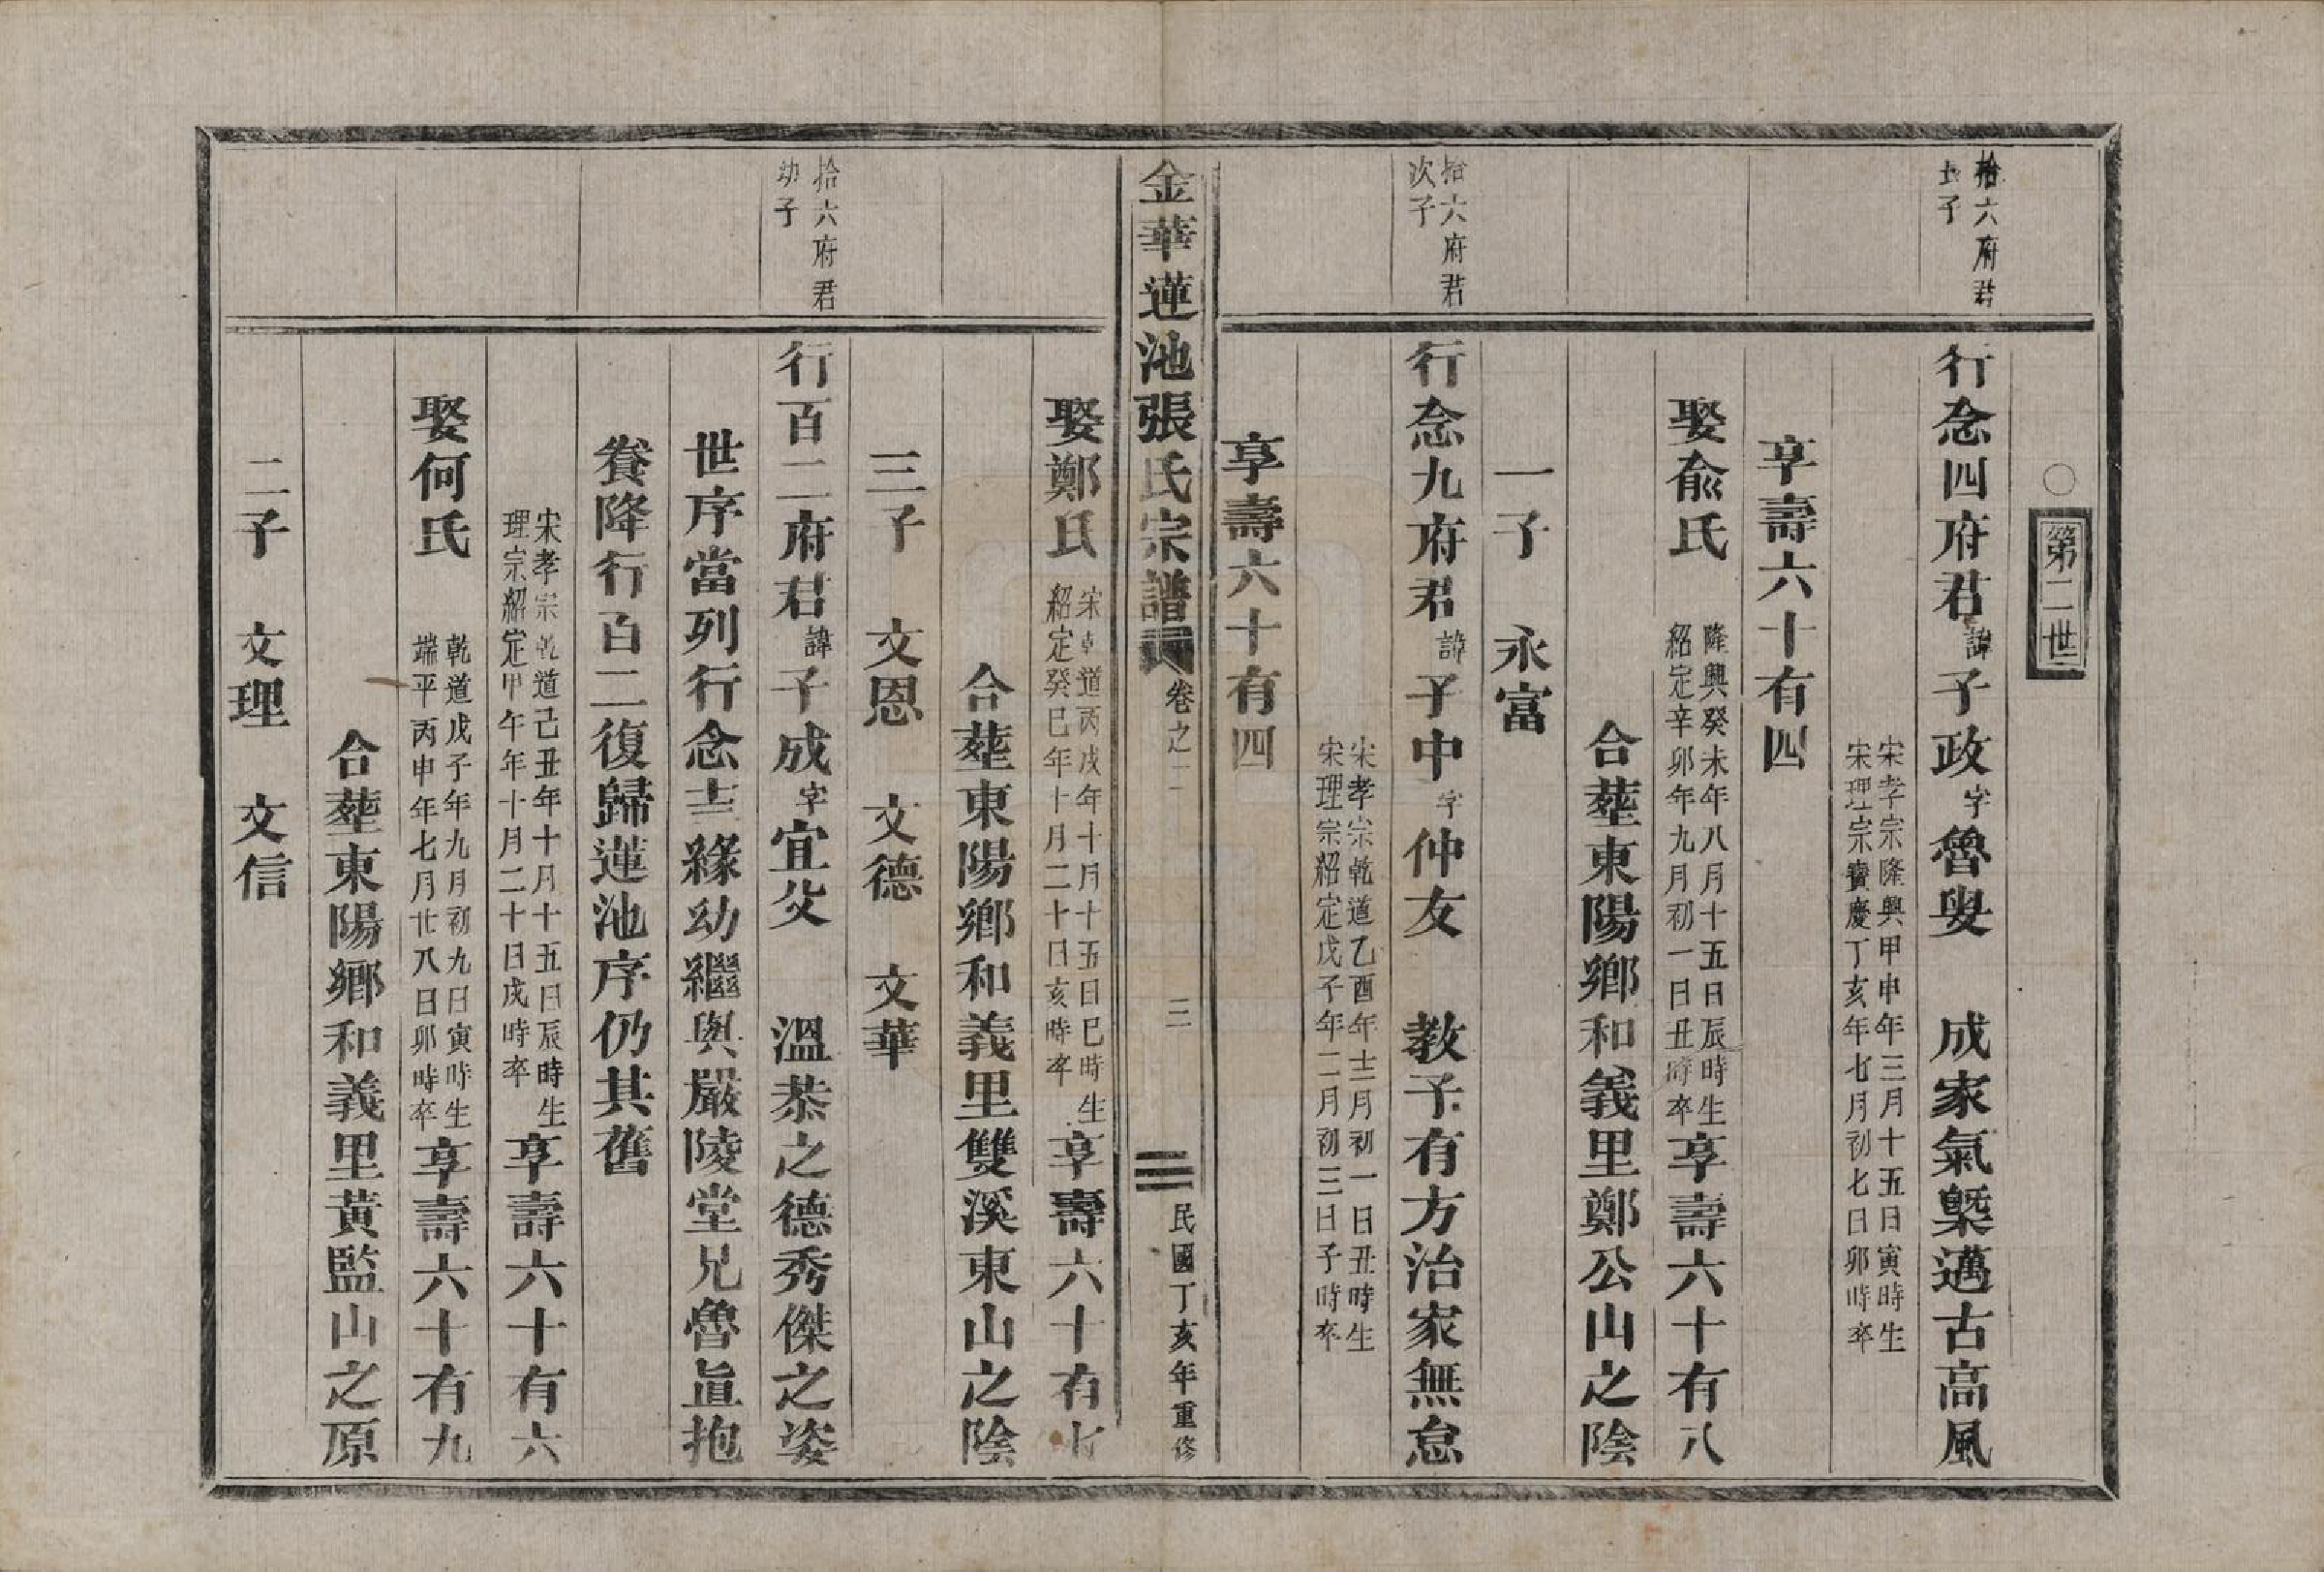 ○第二世
拾六府君
長子
行念四府君諱子政字魯叟　成家氣槩邁古高風
宋孝宗隆興甲申年三月十五日寅時生
宋理宗寶慶丁亥年七月初七日卯時卒
享壽六十有四
娶俞氏
隆興癸未年八月十五日辰時生
紹定辛卯年九月初一日丑時卒
享壽六十有八
合塟東陽鄉和義里鄭公山之陰
一子　永富
拾六府君
次子
行念九府君諱子中字仲友　教子有方治家無怠
宋孝宗乾道乙酉年十二月初一日丑時生
宋理宗紹定戊子年二月初三日子時卒
享壽六十有四
金華蓮池張氏宗譜
卷之二
三
民國丁亥年重修
娶鄭氏
宋乾道丙戌年十月十五日巳時生
紹定癸巳年十月二十日亥時卒
享壽六十有七
合塟東陽鄉和義里雙溪東山之陰
三子　文恩　文德　文華
拾六府君
幼子
行百二府君諱子成字宜父　溫恭之德秀傑之姿
世序當列行念十三緣幼繼與嚴陵堂兄魯直抱
養降行百二復歸蓮池序仍其舊
宋孝宗乾道己丑年十月十五日辰時生
理宗紹定甲午年十月二十日戌時卒
享壽六十有六
娶何氏
乾道戊子年九月初九日寅時生
端平丙申年七月廿八日卯時卒
享壽六十有九
合塟東陽鄉和義里黃監山之原
二子　文理　文信